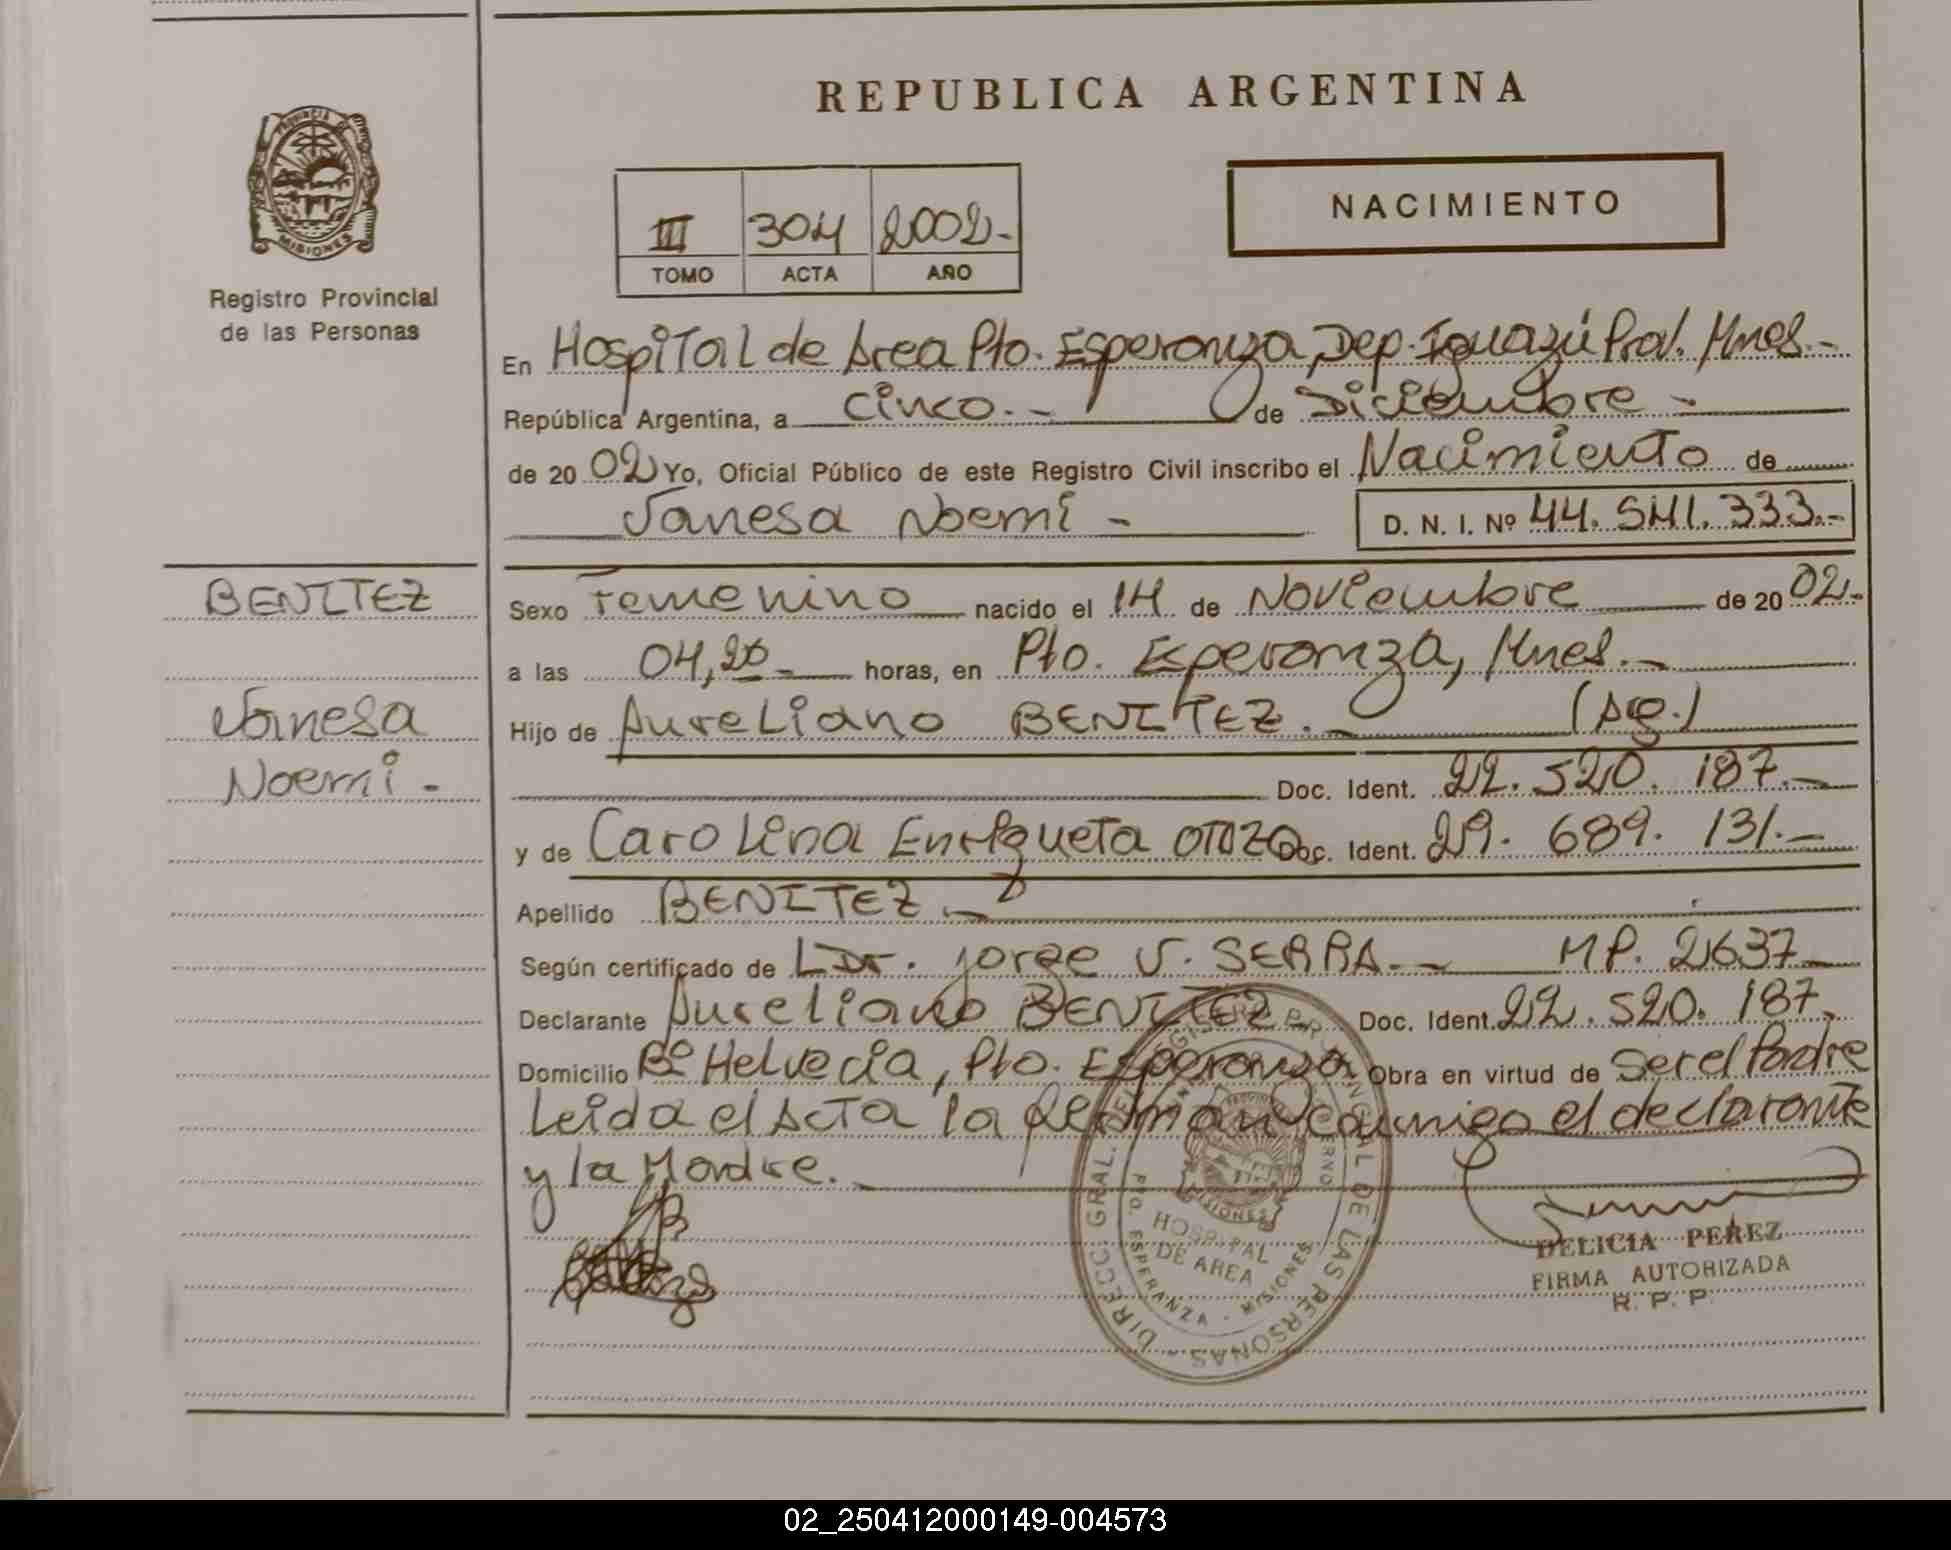 REPUBLICA ARGENTINA
PROVINCIA DE
MISIONES
Registro Provincial
de las Personas
III 304 2002.-
TOMO ACTA AÑO
NACIMIENTO
En Hospital de Area Pto. Esperanza, Dep. Iguazú Prov. Mnes.-
República Argentina, a cinco.- de Diciembre -
de 20 02 Yo, Oficial Público de este Registro Civil inscribo el Nacimiento de
Vanesa Noemi - D. N. I. Nº 44.541.333.-
BENITEZ
Vanesa
Noemi -
Sexo Femenino nacido el 14 de Noviembre de 20 02.-
a las 04,20 - horas, en Pto. Esperanza, Mnes.-
Hijo de Aureliano BENITEZ.- (Ag.)
Doc. Ident. 22.520.187.-
y de Carolina Enriqueta Doc. Ident. 29.689.131.-
Apellido BENITEZ.-
Según certificado de Dr. Jorge V. SERRA.- MP. 2637
Declarante Aureliano BENITEZ Doc. Ident. 22.520.187.
Domicilio Bº Helvecia, Pto. Esperanza Obra en virtud de ser el Padre
Leida el Acta la firman conmigo el declarante
y la Madre.-
DIRECC. GRAL. DEL REGISTRO PROVINCIAL DE LAS PERSONAS -
HOSPITAL
DE AREA
PTO. ESPERANZA - MISIONES
DELICIA PEREZ
FIRMA AUTORIZADA
R. P. P.
02_250412000149-004573